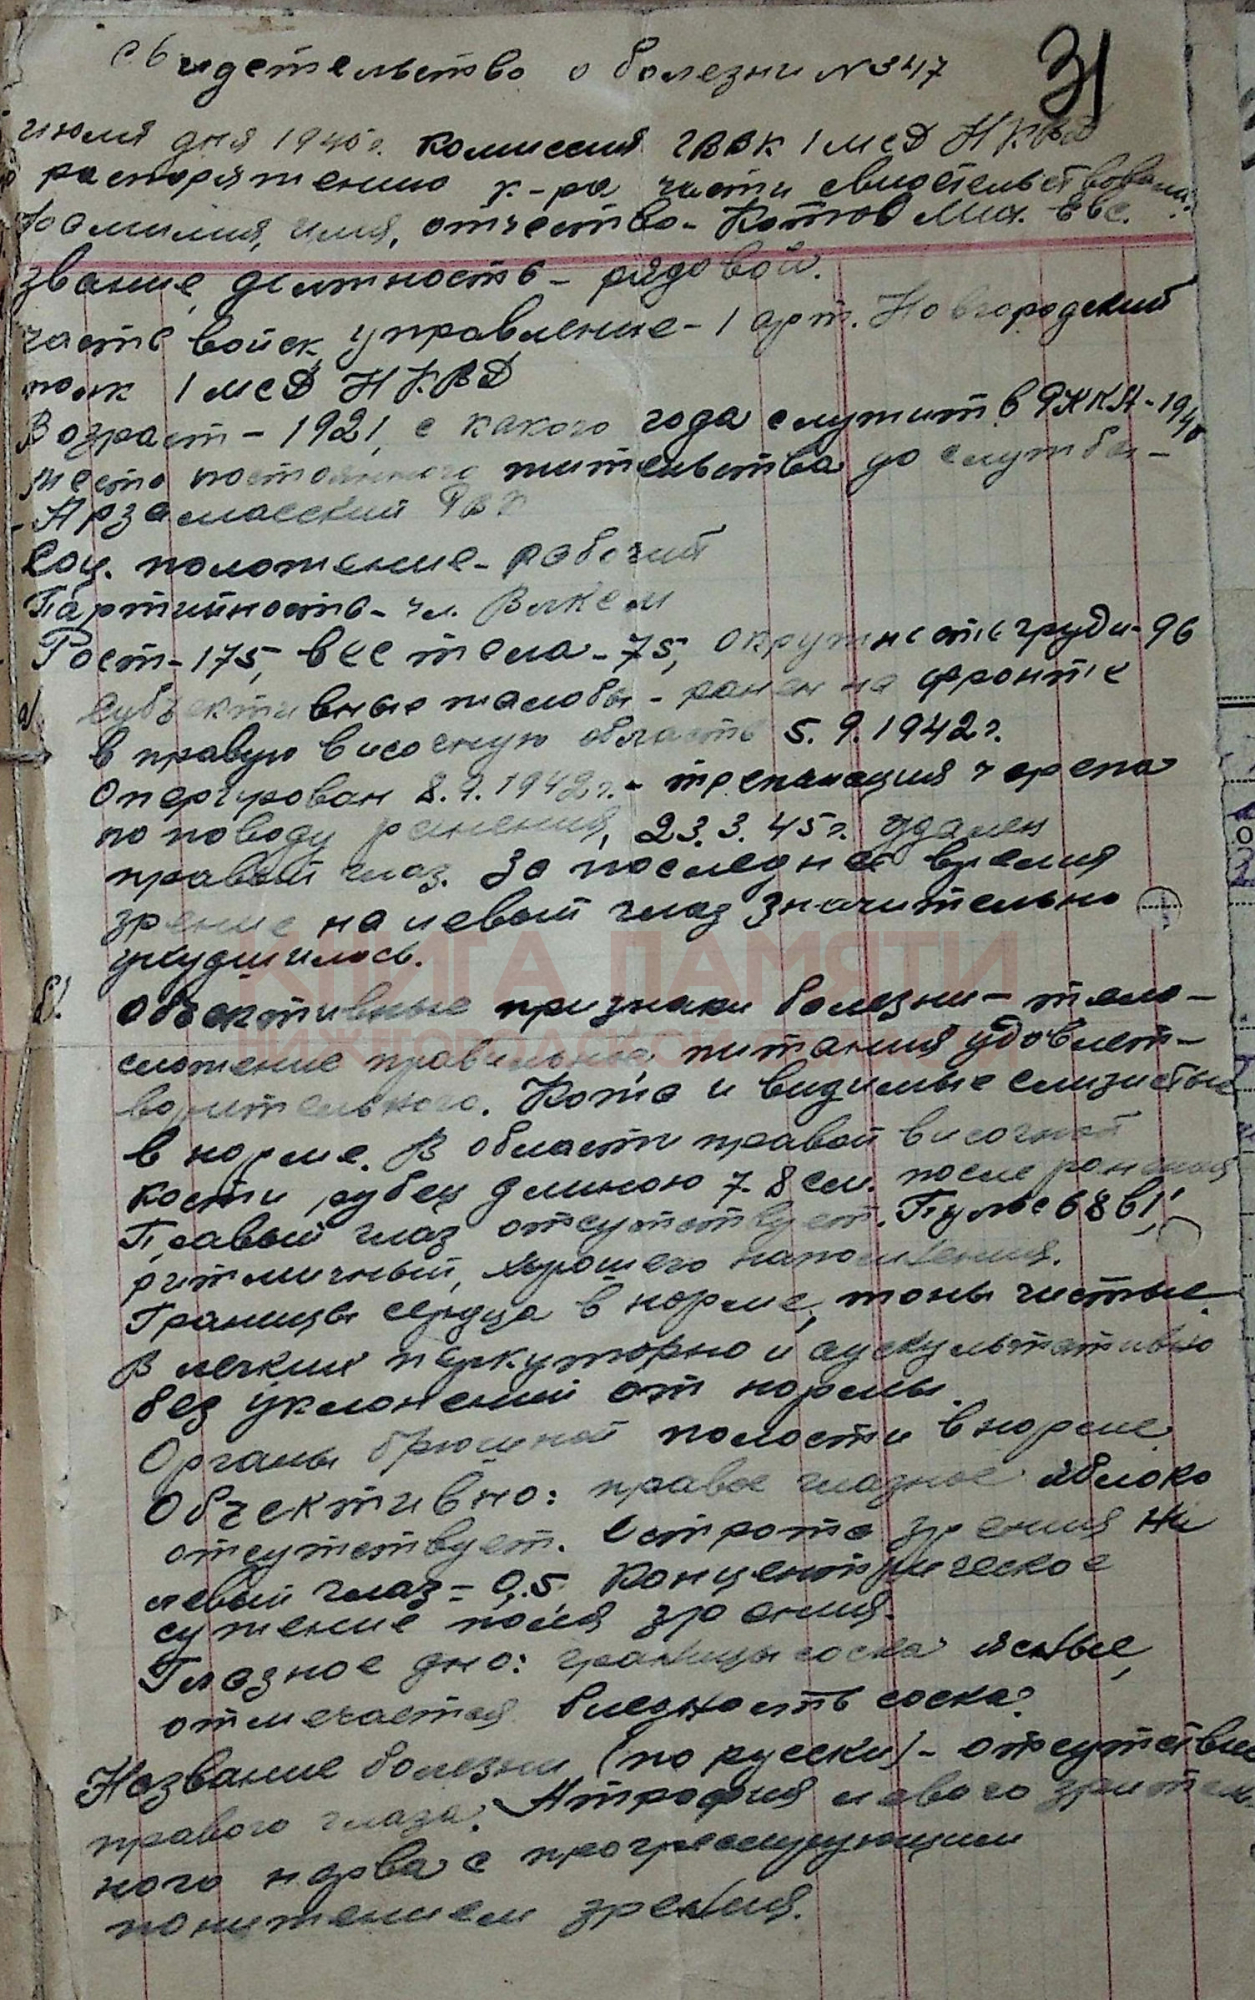 31
Свидетельство о болезни N 347
июля дня 1945г. комиссия ГВВК 1 мсд НКВД
распоряжению к-ра части свидетельствован
Фамилия, имя, отчество - Котов Мих. Евс.
звание, должность - рядовой.
часть войск, управление - 1 арт. Новгородский
полк 1 мсд НКВД
Возраст - 1921, с какого года служит в РККА - 1940
место постоянного жительства до службы -
- Арзамасский РВК
Соц. положение - рабочий
Партийность - чл. ВЛКСМ
Рост - 175, вес тела - 75, окружность груди - 96
а/ Субъективные жалобы - ранен на фронте
в правую височную область 5.9.1942г.
Оперирован 8.9.1942г. - трепанация черепа
по поводу ранения, 23.3.45г. удален
правый глаз. За последнее время
зрение на левый глаз значительно
ухудшилось.
КНИГА ПАМЯТИ
б/. Объективные признаки болезни - тело-
НИЖЕГОРОДСКОЙ ОБЛАСТИ
сложение правильное, питания удовлет-
ворительного. Кожа и видимые слизистые
в норме. В области правой височной
кости рубец длиною 7-8 см. после ранения
Правый глаз отсутствует. Пульс 68 в 1',
ритмичный, хорошего наполнения.
Границы сердца в норме, тоны чистые.
В легких перкуторно и аускультативно
без уклонений от нормы.
Органы брюшной полости в норме.
Объективно: правое глазное яблоко
отсутствует. Острота зрения на
левый глаз - 0,5. Концентрическое
сужение поля зрения.
Глазное дно: границы соска ясные,
отмечается бледность соска.
Название болезни (по русски) - отсутствие
правого глаза. Атрофия левого зритель-
ного нерва с прогрессирующим
понижением зрения.